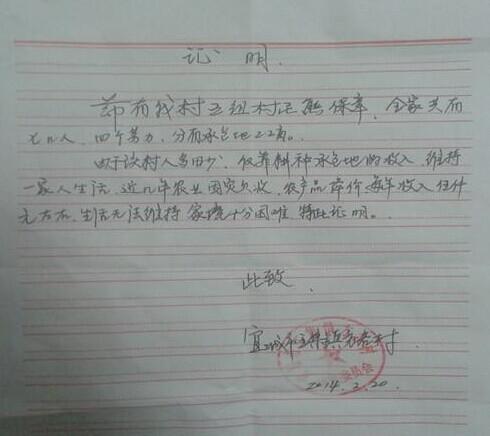 证 明.
兹有我村五组村民熊保章, 全家共有
七口人, 四个劳力, 分有承包地2.2亩。
由于该村人多田少, 仅靠耕种承包地的收入, 维持
一家人生活, 近几年农业因灾欠收, 农产品降价, 每年收入
元左右, 生活无法维持 家境十分困难 特此证明。
此致.
宜城市 镇 村
委员会
2014.2.20.